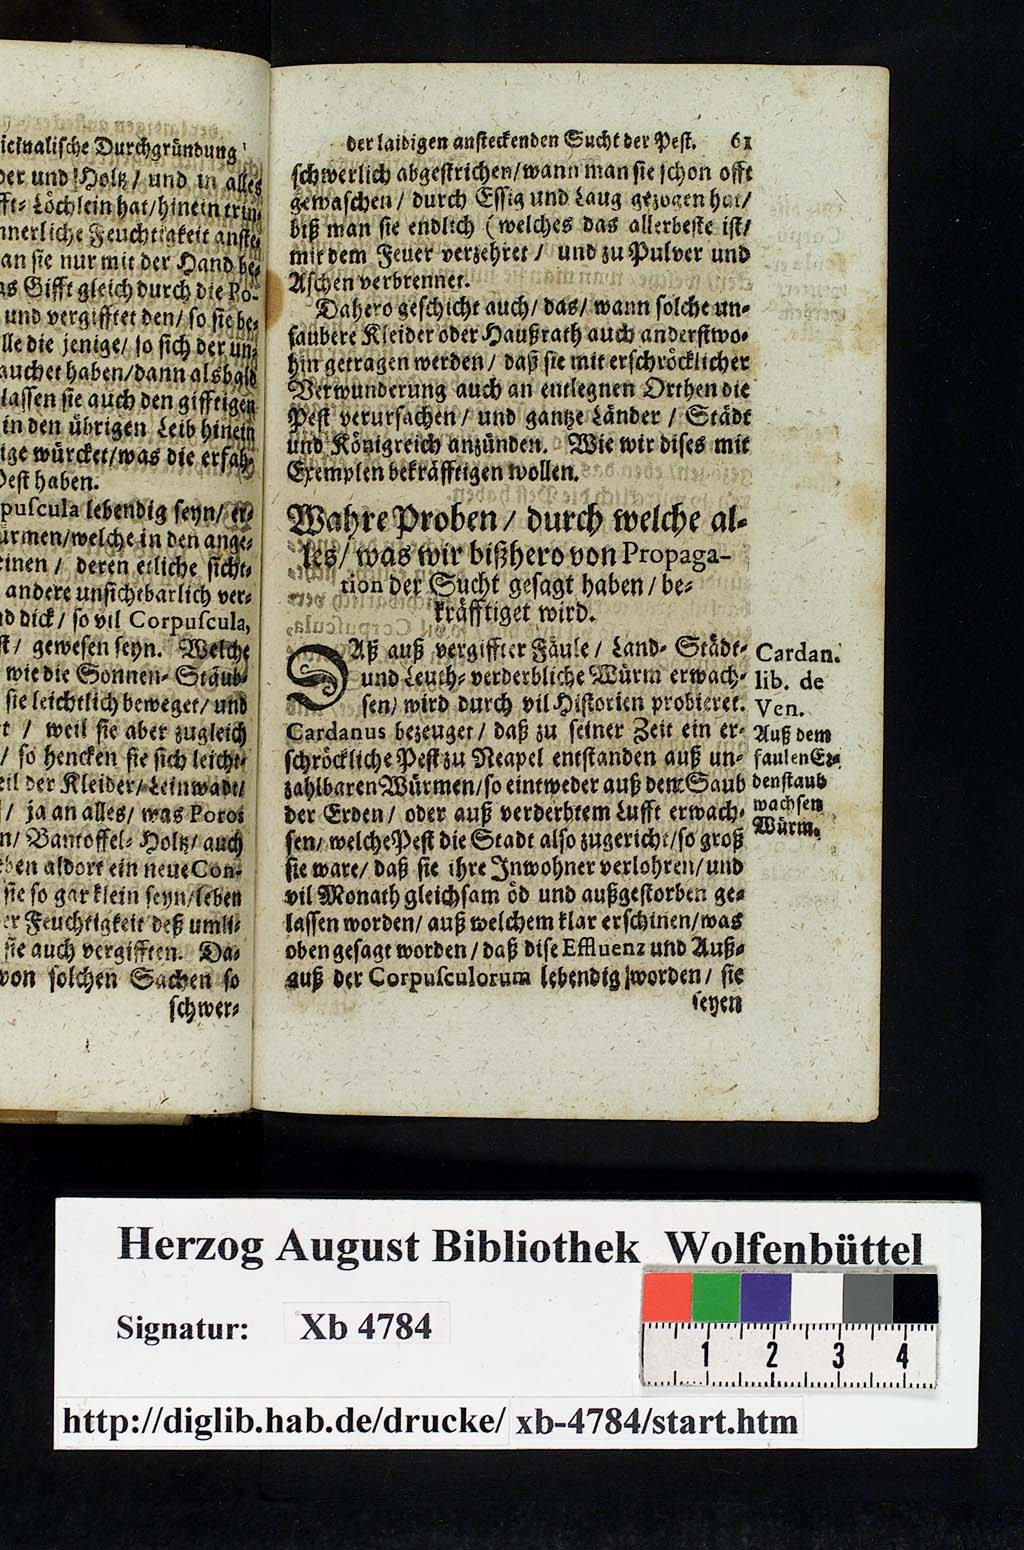 icinalische Durchgründung
der und Holtz / und in alles
fft- Löchlein hat / hinein trin-
nnerliche Feuchtigkeit anste-
an sie nur mit der Hand be-
as Gifft gleich durch die Po-
und vergifftet den / so sie be-
lle die jenige / so sich der un-
auchet haben / dann alsbald
lassen sie auch den gifftigen
in den übrigen Leib hinein
ige würcket / was die erfah-
Pest haben.
puscula lebendig seyn / er-
ürmen / welche in den ange-
einen / deren etliche sicht-
andere unsichtbarlich ver-
nd dick / so vil Corpuscula,
st / gewesen seyn. Welche
wie die Sonnen- Stäub-
sie leichtlich beweget / und
t / weil sie aber zugleich
/ so hencken sie sich leicht-
eil der Kleider / Leinwadt /
/ ja an alles / was Poros
n / Bantoffel- Holtz / auch
ben aldort ein neue Con-
sie so gar klein seyn / leben
er Feuchtigkeit deß umli-
sie auch vergifften. Da-
von solchen Sachen so
schwer-
der laidigen ansteckenden Sucht der Pest. 61
schwerlich abgestrichen / wann man sie schon offt
gewaschen / durch Essig und Laug gezogen hat /
biß man sie endlich (welches das allerbeste ist /
mit dem Feuer verzehret / und zu Pulver und
Aschen verbrennet.
Dahero geschicht auch / das / wann solche un-
saubere Kleider oder Haußrath auch anderstwo-
hin getragen werden / daß sie mit erschröcklicher
Verwunderung auch an entlegnen Orthen die
Pest verursachen / und gantze Länder / Städt
und Königreich anzünden. Wie wir dises mit
Exemplen bekräfftigen wollen.
Wahre Proben / durch welche al-
les / was wir bißhero von Propaga-
tion der Sucht gesagt haben / be-
kräfftiget wird.
DAß auß vergiffter Fäule / Land- Städt-
und Leuth- verderbliche Würm erwach-
sen / wird durch vil Historien probieret.
Cardanus bezeuget / daß zu seiner Zeit ein er-
schröckliche Pest zu Neapel entstanden auß un-
zahlbaren Würmen / so eintweder auß dem Saub
der Erden / oder auß verderbtem Lufft erwach-
sen / welche Pest die Stadt also zugericht / so groß
sie ware / daß sie ihre Inwohner verlohren / und
vil Monath gleichsam öd und außgestorben ge-
lassen worden / auß welchem klar erschinen / was
oben gesagt worden / daß dise Effluenz und Auß-
auß der Corpusculorum lebendig worden / sie
seyen
Cardan.
lib. de
Ven.
Auß dem
faulen Er-
denstaub
wachsen
Würm.
Herzog August Bibliothek Wolfenbüttel
Signatur: Xb 4784
1 2 3 4
http://diglib.hab.de/drucke/ xb-4784/start.htm